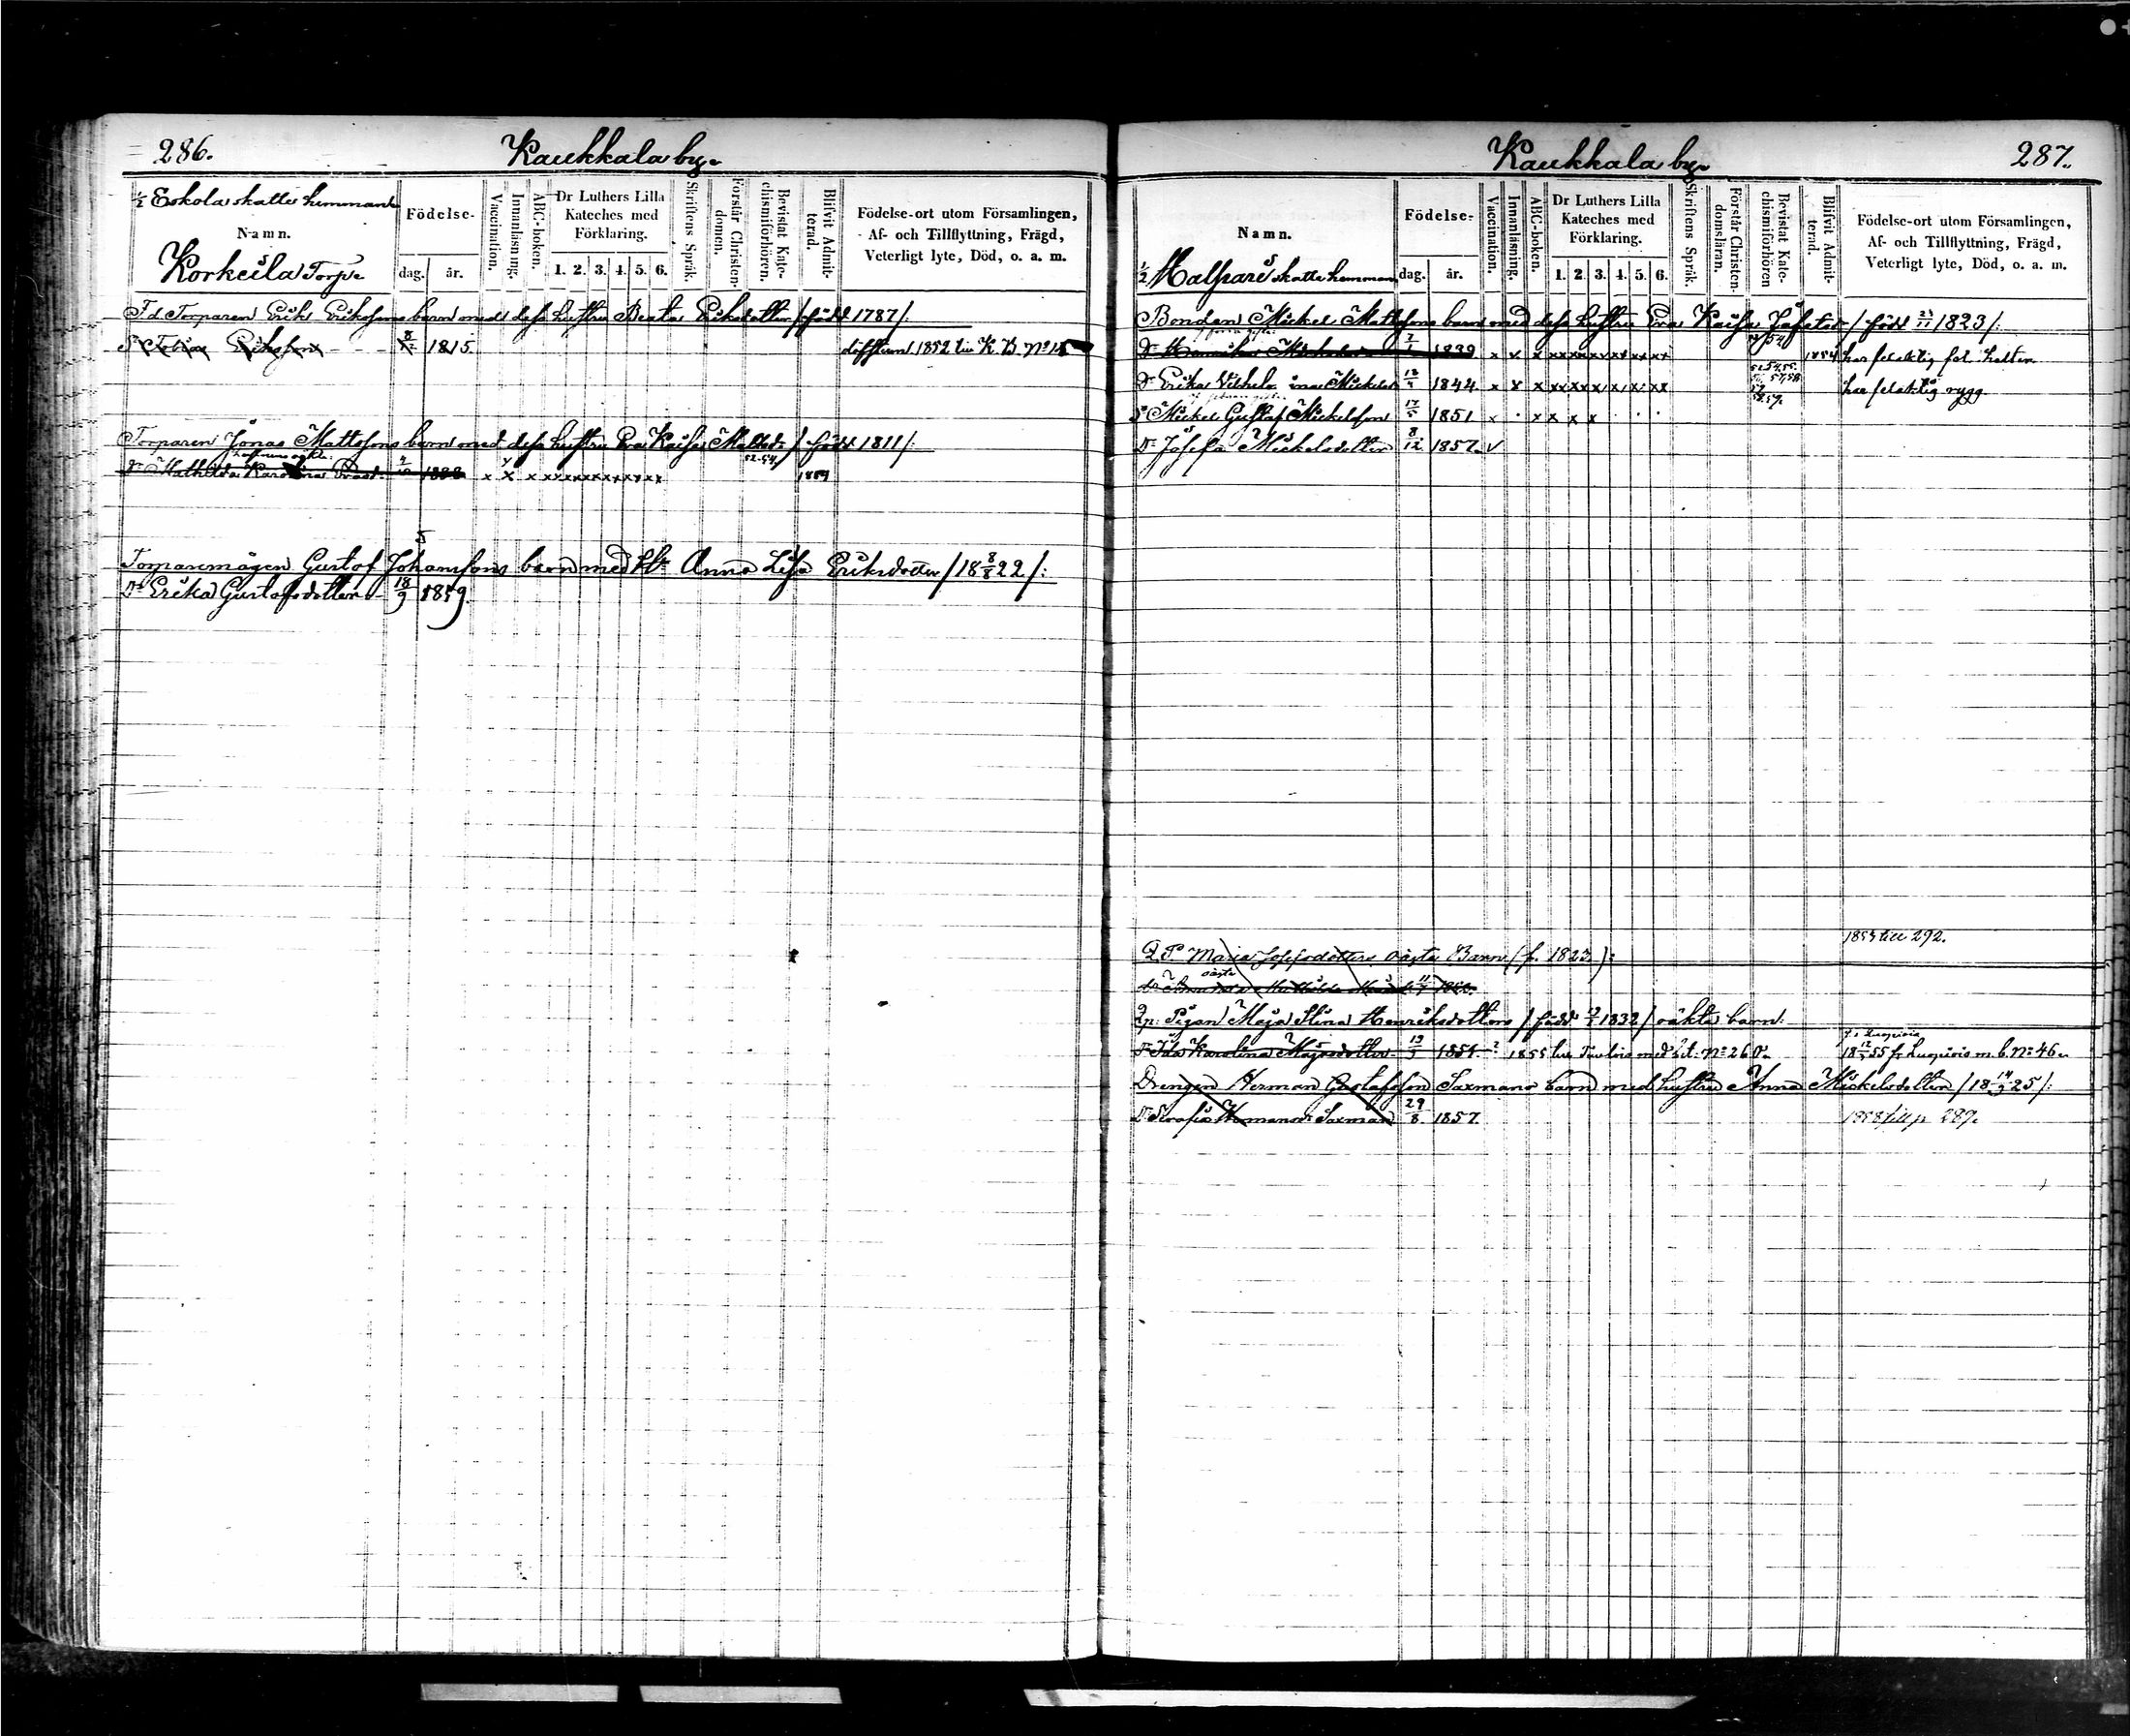 286.
Kaukkala by.
½ Eskola skatte hemmans
Namn.
Korkeila Torp.
Födelse-
dag. år.
Vaccination.
Innanläsning.
ABC-boken.
Dr Luthers Lilla Kateches med Förklaring.
1. 2. 3. 4. 5. 6.
Skriftens Språk.
Förstår Christendomen.
Bevistat Katechismiförhören.
Blifvit Admitterad.
Födelse-ort utom Församlingen, Af- och Tillflyttning, Frägd, Veterligt lyte, Död, o. a. m.
F.d. Torparen Erik Eriksons barn med dess hustru Beata Eriksdotter /född 1787/.
Eriksson 1815. 1852 K. B. No 15
Torparen Jonas Mattssons barn med dess hustru Eva Kaisa Mattsdr / född 1811/:
52-54
Dr Mathilda Karolina x x x x x x x x x x x
Torparemågen Gustaf Johanssons barn med H. Anna Lisa Eriksdotter /18 8/8 22/:
Dr Erika Gustafsdotter 18/9 1859.
Kaukkala by
287.
Namn.
½ skatte hemman
Födelse-
dag. år.
Vaccination.
Innanläsning.
ABC-boken.
Dr Luthers Lilla Kateches med Förklaring.
1. 2. 3. 4. 5. 6.
Skriftens Språk.
Förstår Christendomsläran.
Bevistat Katechismiförhören
Blifvit Admitterad.
Födelse-ort utom Församlingen, Af- och Tillflyttning, Frägd, Veterligt lyte, Död, o. a. m.
Bonden Mickel Mattssons barn med dess hustru Eva Kaisa / född 23/11 1823/:
1839 x v x x x x x x x x x 1854 har felaktig
Dr Erika Vilhelmina Mickelsd 1844 x x x x x x x x x x har felaktig rygg.
S. Mickel Gustaf Mickelsson 17/5 1851 x x x x x
Dr Josefa Mickelsdotter 8/12 1857. v
1853 till 292.
Q.P. Maria Josefsdotters oäkta Barn (f. 1823):
Qp: Pigan Maja Stina Henriksdotters / född 1832/ oäkta barn:
Dr Ida Karolina Majasdotter 1851. 1855 No 260.
55 fr. Luopiois m. b. No 46.
Drengen Herman Gustafsson Saxmans barn med hustru Anna Mickelsdotter /18 14/9 25/:
Dr Serafia Hermansdr Saxman 29/8 1857. 1858 till p. 289.